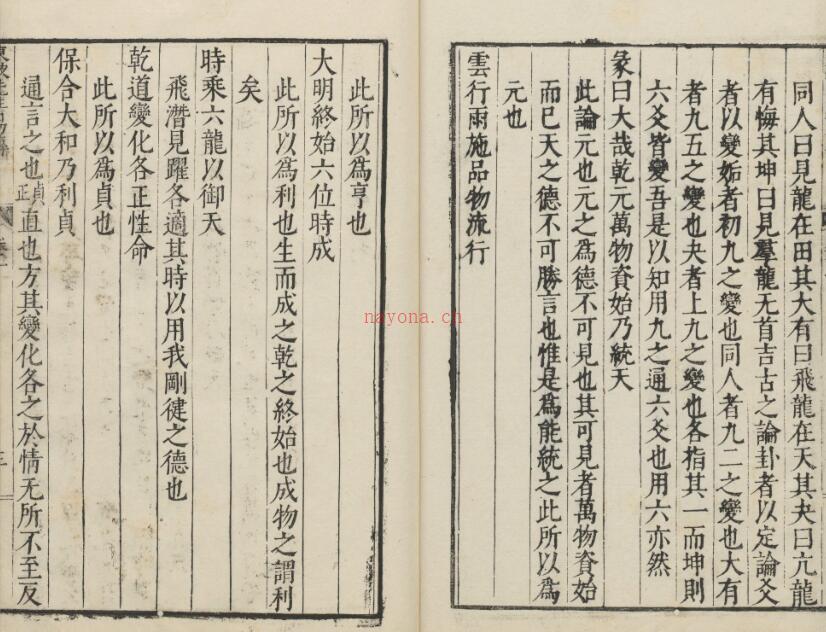 同人曰見龍在田其大有曰飛龍在天其夬曰亢龍
有悔其坤曰見羣龍无首吉古之論卦者以定論爻
者以變姤者初九之變也同人者九二之變也大有
者九五之變也夬者上九之變也各指其一而坤則
六爻皆變吾是以知用九之通六爻也用六亦然
彖曰大哉乾元萬物資始乃統天
此論元也元之爲德不可見也其可見者萬物資始
而已天之德不可勝言也惟是爲能統之此所以爲
元也
雲行雨施品物流行
此所以爲亨也
大明終始六位時成
此所以爲利也生而成之乾之終始也成物之謂利
矣
時乘六龍以御天
飛潛見躍各適其時以用我剛健之德也
乾道變化各正性命
此所以爲貞也
保合大和乃利貞
通言之也貞正直也方其變化各之於情无所不至反
nayona.cn